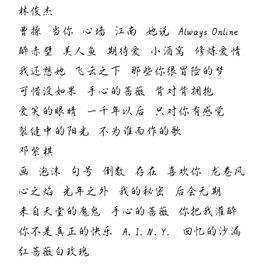 林俊杰
曹操 当你 心墙 江南 她说 Always Online
醉赤壁 美人鱼 期待爱 小酒窝 修炼爱情
我还想她 飞云之下 那些你很冒险的梦
可惜没如果 手心的蔷薇 背对背拥抱
爱笑的眼睛 一千年以后 只对你有感觉
裂缝中的阳光 不为谁而作的歌
邓紫棋
画 泡沫 句号 倒数 存在 喜欢你 龙卷风
心之焰 光年之外 我的秘密 后会无期
来自天堂的魔鬼 手心的蔷薇 你把我灌醉
你不是真正的快乐 A.I.N.Y. 回忆的沙漏
红蔷薇白玫瑰